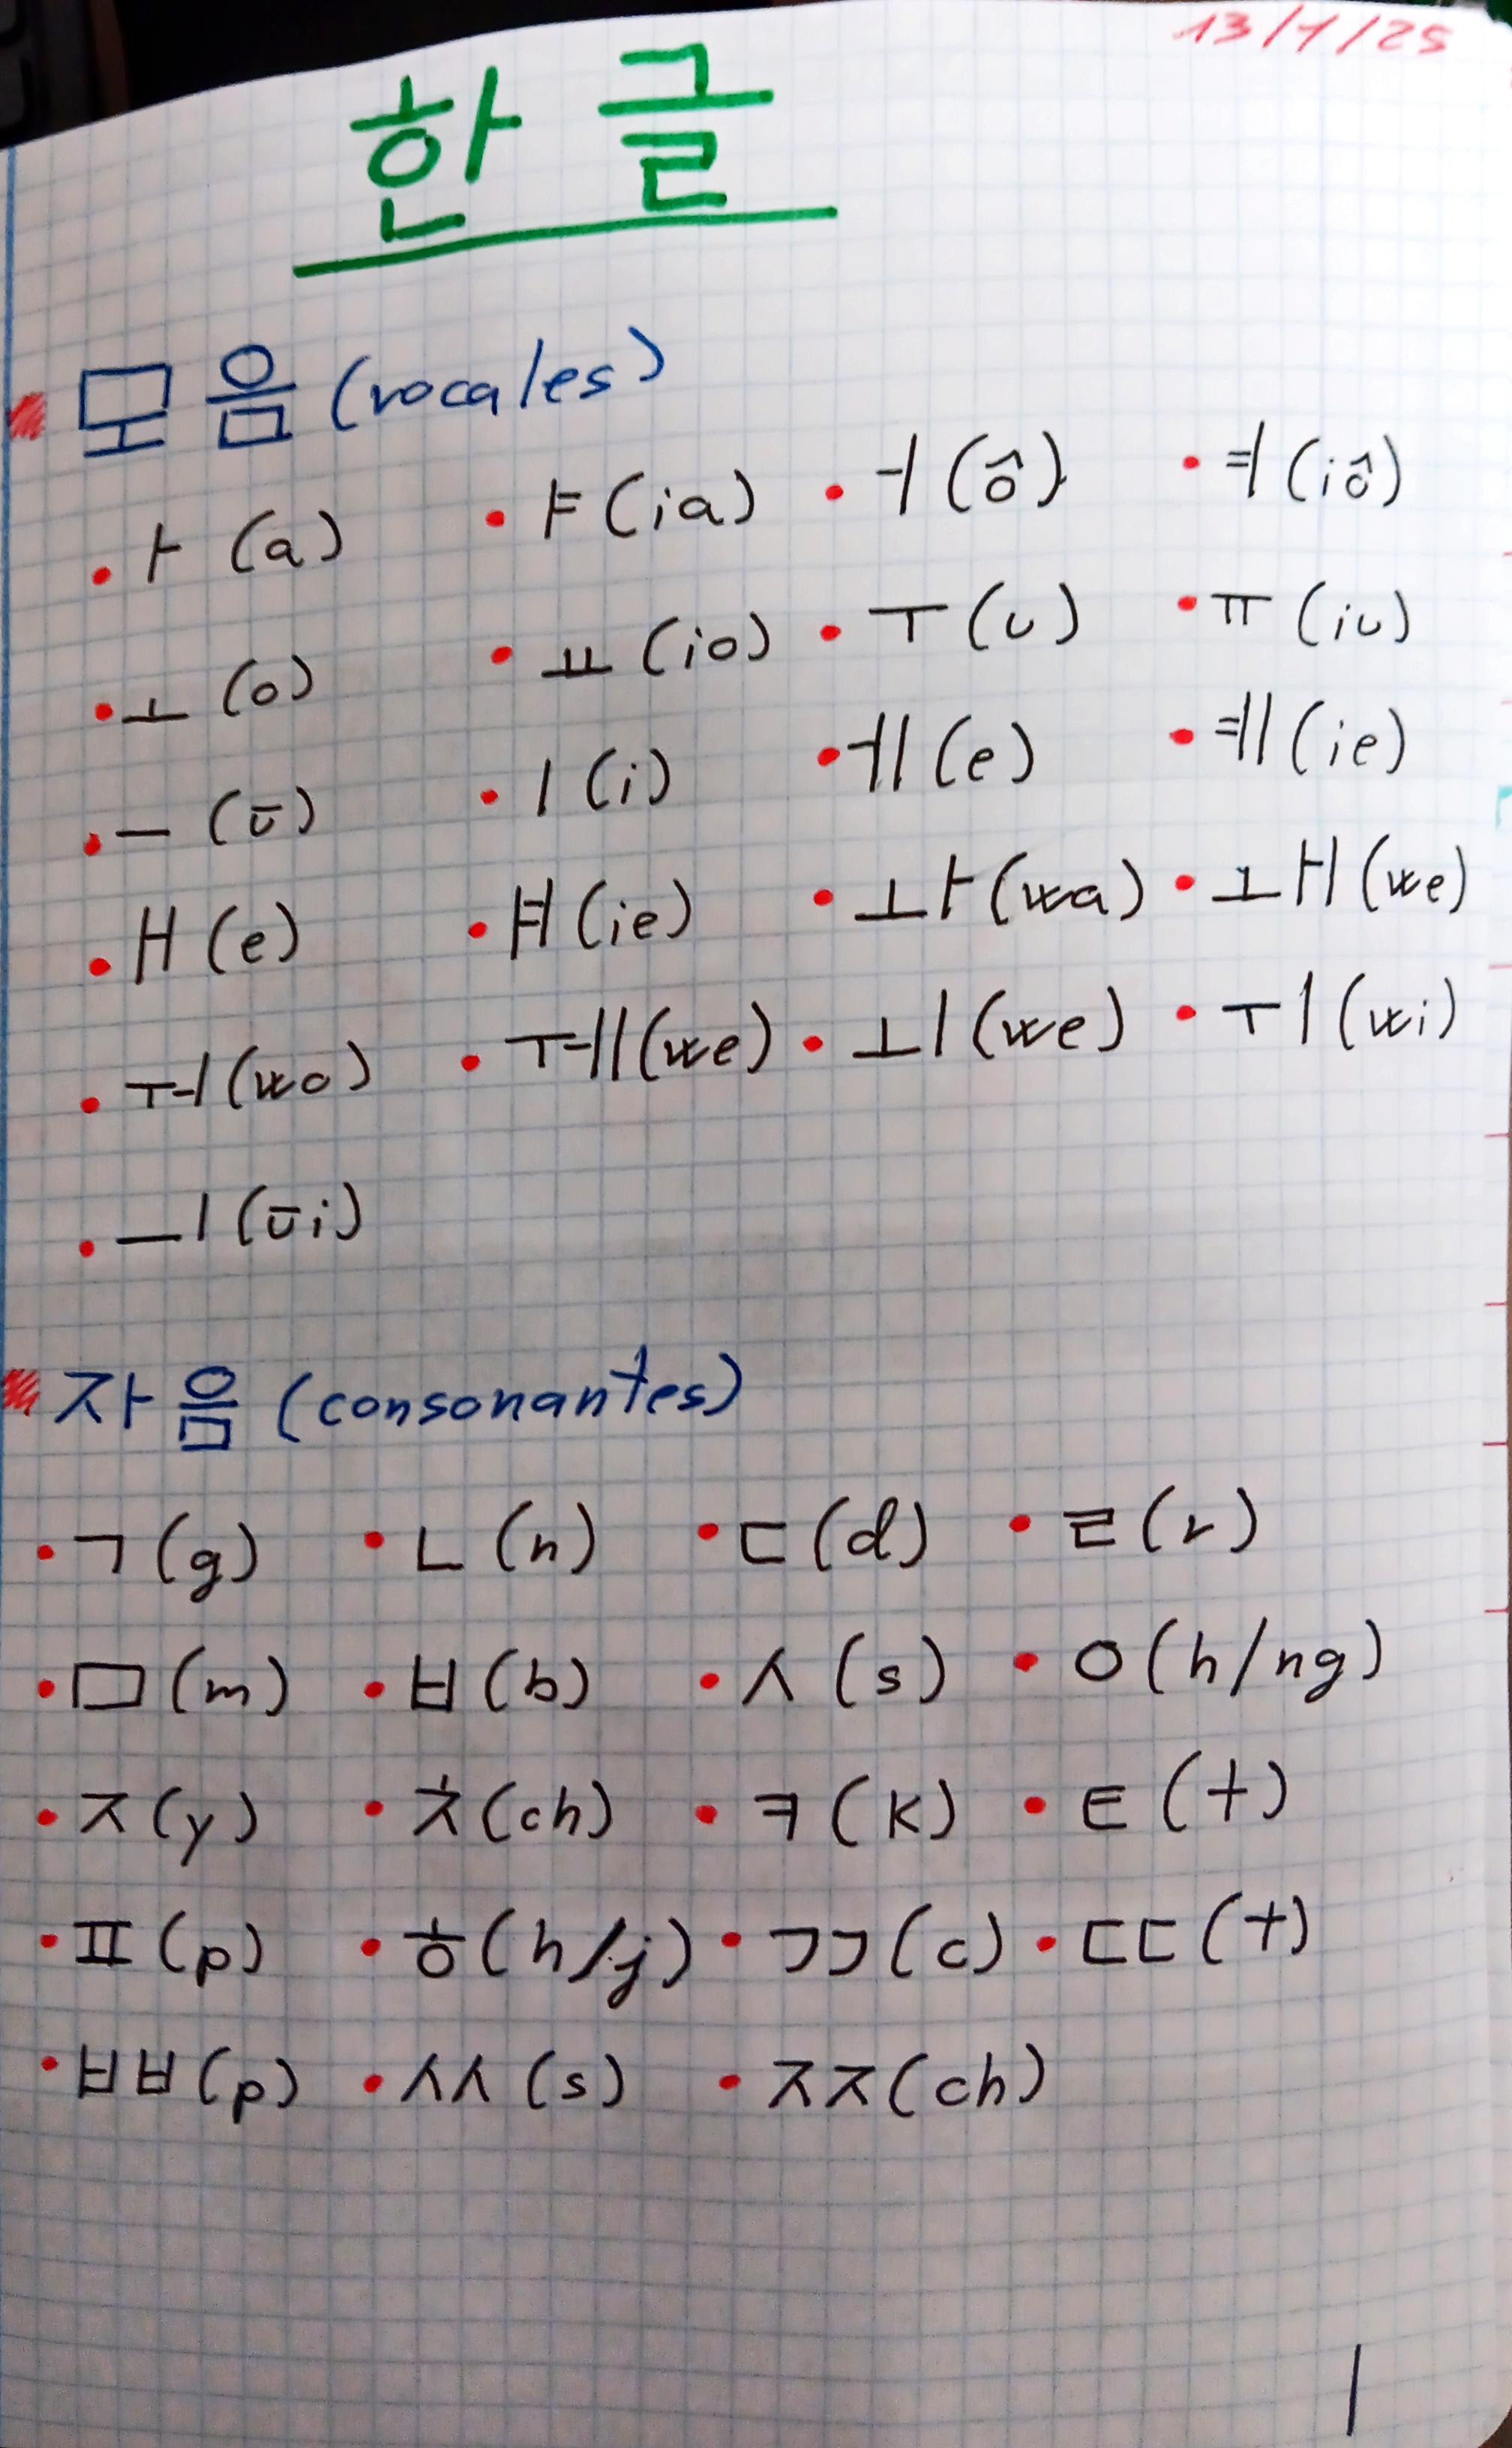 13/1/25
한글
모음 (vocales)
• ㅏ (a) • ㅑ (ia) • ㅓ (ô) • ㅕ (iô)
• ㅗ (o) • ㅛ (io) • ㅜ (u) • ㅠ (iu)
• ㅡ (ū) • ㅣ (i) • ㅔ (e) • ㅖ (ie)
• ㅐ (e) • ㅒ (ie) • ㅘ (wa) • ㅙ (we)
• ㅝ (wo) • ㅞ (we) • ㅚ (we) • ㅟ (wi)
• ㅢ (ūi)
자음 (consonantes)
• ㄱ (g) • ㄴ (n) • ㄷ (d) • ㄹ (r)
• ㅁ (m) • ㅂ (b) • ㅅ (s) • ㅇ (h/ng)
• ㅈ (y) • ㅊ (ch) • ㅋ (k) • ㅌ (t)
• ㅍ (p) • ㅎ (h/j) • ㄲ (c) • ㄸ (t)
• ㅃ (p) • ㅆ (s) • ㅉ (ch)
1